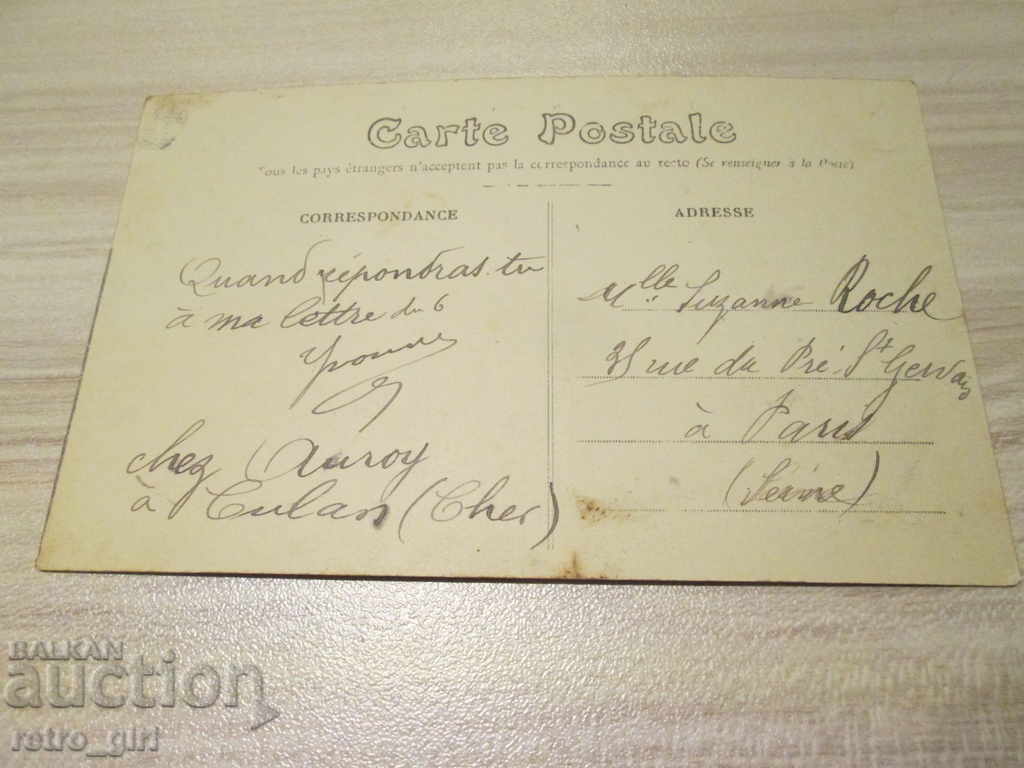 Carte Postale
Tous les pays étrangers n'acceptent pas la correspondance au recto (Se renseigner à la Poste)
CORRESPONDANCE
Quand répondras-tu
à ma lettre du 6
Yvonne
chez Auroy
à Culan (Cher)
ADRESSE
Mlle Suzanne Roche
35 rue du Pré-St Gervais
à Paris
(Seine)
BALKAN
auction
retro_girl